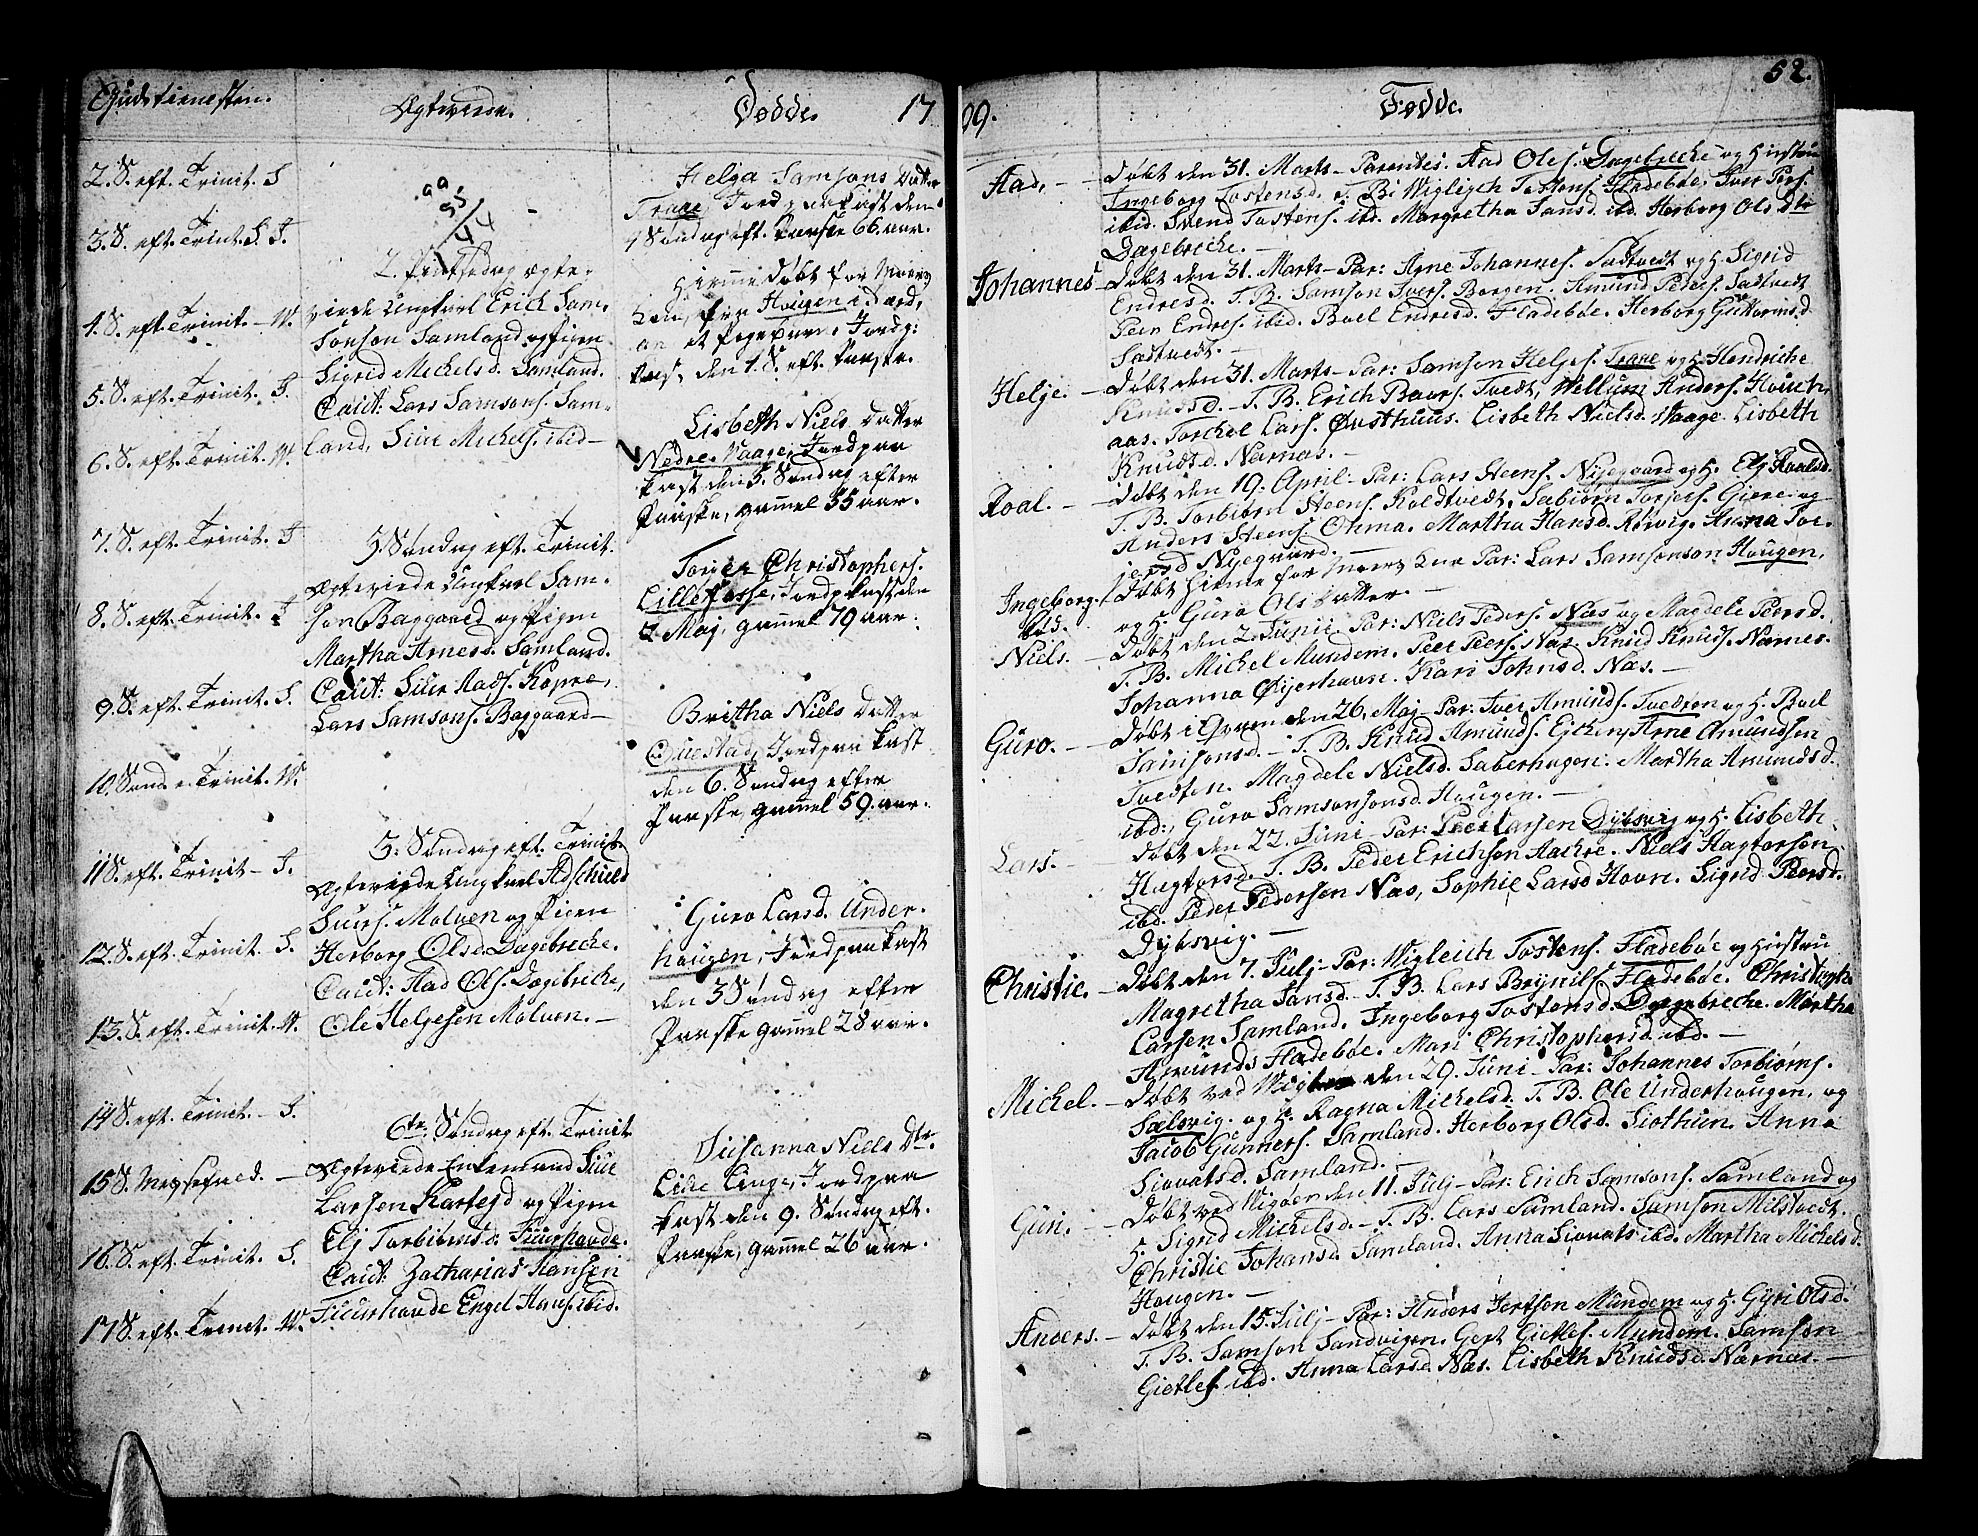 Gudstienesten.
2. S. eft. Trinit. S
3. S. eft. Trinit. S. J.
4. S. eft. Trinit. — W.
5. S. eft. Trinit. J.
6. S. eft. Trinit. W.
7. S. eft. Trinit. J
8. S. eft. Trinit. J
9. S. eft. Trinit. S.
10. Sønd. e. Trinit. W.
11 S. eft. Trinit — S.
12. S. eft. Trinit. S.
13. S. eft. Trinit. W.
14 S. eft. Trinit. — J.
15 S. Messefred. —
16. S. eft. Trinit. S.
17 S. eft. Trinit. W.
Ægteviede.
99
55
44
2. Pintsedag ægte-
viede Ungkarl Erich Sam-
sonson Samland og Pigen
Sigrid Michelsd. Samland.
Caut: Lars Samsons. Sam-
land, Siur Michels. ibid —
3. Søndag eft. Trinit.
Ægteviede Ungkarl Sam-
son Baggaard og Pigen
Martha Arnesd. Samland.
Caut: Siur Aads. Kopre,
Lars Samsons. Baggaard —
5. Søndag eft. Trinit.
Ægteviede Ungkarl Adschield
Siurs. Molven og Pigen
Herborg Olsd. Dagebreche.
Caut: Aad Ols. Dagebreche,
Ole Helgesen Molven. —
6te Søndag eft. Trinit
Ægteviede Enkemand Siur
Larsen Karte og Pigen
Elj Torbiørnsd. Fuurhovde.
Caut: Zacharias Hansen
Fuurhovde Engel Hans. ibid.
Dødde. 17
Helga Samsons Datter
Trane, Jordpaakast den
4 Søndag eft. Paaske 66. aar.
Hiemmedøbt for Mœrs
Hougen
et Pigebarn. Jordp:
kast, den 4. S. eft. Paaske.
Lisbeth Niels Datter
Nedre Vaage, Jordpaa
kast den 5. Søndag efter
Paaske, gammel 35 aar.
Torger Christophers.
Lillefosse, Jordpkast den
2. Maj, gammel 79 aar.
Britha Niels Datter
Questad, Jordpaa kast
den 6. Søndag efter
Paaske, gammel 59. aar.
Guro Larsd. Under-
hougen, Jordpaakast
den 3 Søndag efter
Paaske gammel 28 aar.
Susanna Niels Dtr.
Lide Jordpaa
kast den 9. Søndag eft.
Paaske, gammel 26 aar.
99. Fødde. 52.
Aad, — Døbt den 31. Marts — Parentes. Aad Ols. Dagebreche og Hustru
Ingeborg Tostensd. T: B: Wigligh Tostens. Fladebøe, Iver Pers.
ibid. Svend Tostens. ibd. Margretha Jansd. ibd. Herborg Olsd.
Dagebreche. —
Johannes — Døbt den 31. Marts — Par: Arne Johannes. Sadtvedt og H. Sigrid
Endresd. T. B. Samson Ivers. Borgen. Amund Peders. Sadtvedt
Peer Endres. ibid. Boel Endresd. Fladebøe. Herborg Guttormsd.
Sadtvedt. —
Helje. — Døbt den 31. Marts — Par: Samson Heljes. Trane og H. Hendriche
Knudsd. — T. B. Erich Baars. Tvedt, Wellum Anders. Houch-
aas. Torchel Lars. Øvsthuus. Lisbeth Nielsd. Waage. Lisbeth
Knudsd. Nærnæs. —
Roal. — Døbt den 19. April — Par: Lars Steens. Nyegaard og H. Elj Roalsd.
T. B. Torbiørn Steens. Koldtvedt, Sabiørn Torgers. Giere og
Anders Steens. Ohma. Martha Hansd. Røvig. Anna Tor-
jersd Nyegaard. —
Ingeborg. — Døbt hieme for Mœrs Par: Lars Samsonson Hougen,
og H. Guro Ols Datter. —
Niels. — Døbt den 2. Junii — Par: Niels Peders. Næs og Magdele Peersd.
T. B. Michel Mundem. Peer Peers. Næs. Knud Knuds. Nærnes.
Johanna Øyerhavn. Kari Johnsd. Næs. —
Guro. — Døbt i den 26. Maj — Par: Iver Amunds. Tvedten og H. Boel
Samsonsd. — T. B. Knud Amunds. Eichen, Arne Amundsen
Tvedten. Magdele Nielsd. Saberhagen. Martha Amundsd.
ibd:, Guro Samsonsonsd. Hougen. —
Lars. — Døbt den 22. Juni — Par: Peer Larsen Dybsvig og H. Lisbeth
Hagtorsd. T. B. Peder Erichsen Aachre. Niels Hagtorson
ibd. Peder Pedersen Næs, Sophie Larsd Havn. Sigrid Peersd.
Dybsvig. —
Christie. — Døbt den 7. Julj — Par: Wigleich Tostens. Fladebøe og Hustru
Magretha Jansd. — T. B. Lars Brynils. Fladebøe. Christopher
Larsen Samland. Ingeborg Tostensd. Dagebreche. Martha
Amunds Fladebøe. Mari Christophersd. ibd. —
Michel. — Døbt ved den 29. Juni — Par: Johannes Torbiørns.
Sælsvig. og H. Ragna Michelsd. T. B. Ole Underhougen, og
Jacob Gunners. Samland. Herborg Olsd. Siothun. Anna
Siovatsd. Samland. —
Guri. — Døbt ved Vigøen den 11. Julj — Par: Erich Samsons. Samland og
H. Sigrid Michelsd. — T. B. Lars Samland. Samson Milstvedt.
Christie Johansd. Samland. Anna Siovats. ibd. Martha Michelsd.
Hougen. —
Anders. — Døbt den 15. Julj — Par: Anders Jertson Mundem og H. Gyri Olsd.
T. B. Samson Sandvigen. Gert Gietles. Mundem. Samson
Gietles. ibd. Anna Larsd. Næs. Lisbeth Knudsd. Nærnæs. —